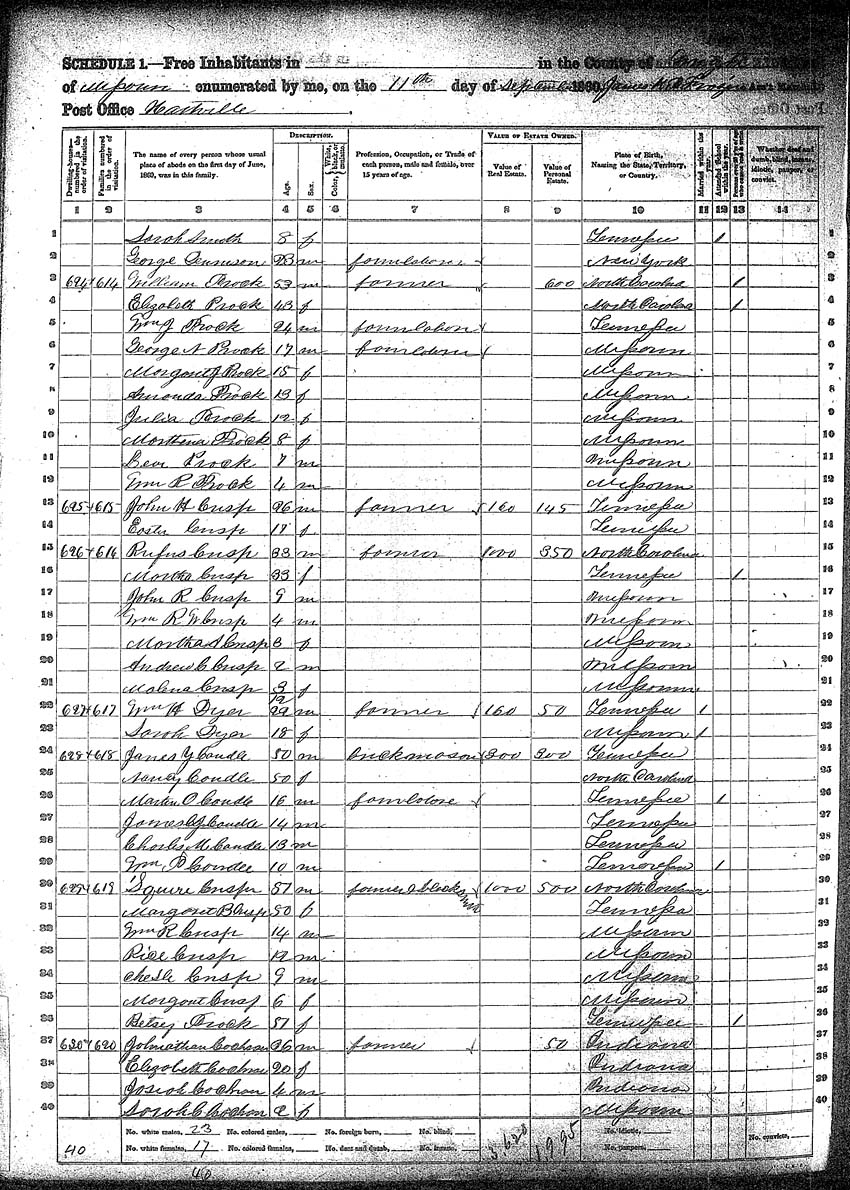 SCHEDULE 1.—Free Inhabitants in in the County of
of Missouri enumerated by me, on the 11th day of September 1860. James Ass't Marshal
Post Office Hartville
DESCRIPTION. VALUE OF ESTATE OWNED.
Dwelling-houses—numbered in the order of visitation.
Families numbered in the order of visitation.
The name of every person whose usual place of abode on the first day of June, 1860, was in this family.
Age.
Sex.
Color, White, black, or mulatto.
Profession, Occupation, or Trade of each person, male and female, over 15 years of age.
Value of Real Estate.
Value of Personal Estate.
Place of Birth, Naming the State, Territory, or Country.
Married within the year.
Attended School within the year.
Whether deaf and dumb, blind, insane, idiotic, pauper, or convict.
1 2 3 4 5 6 7 8 9 10 11 12 13 14
1 Sarah Smith 8 f Tennessee 1 1
2 George 23 m farm laborer New York 2
3 624 614 William Prock 53 m farmer 600 North Carolina 1 3
4 Elizabeth Prock 43 f North Carolina 1 4
5 Wm J Prock 24 m farm laborer Tennessee 5
6 George N Prock 17 m farm laborer Missouri 6
7 Margaret J Prock 15 f Missouri 7
8 Amanda Prock 13 f Missouri 8
9 Julia Prock 12 f Missouri 9
10 Marthena Prock 8 f Missouri 10
11 Prock 7 m Missouri 11
12 Wm R Prock 4 m Missouri 12
13 625 615 John H Crisp 26 m farmer 160 145 Tennessee 13
14 Easter Crisp 18 f Tennessee 14
15 626 616 Rufus Crisp 33 m farmer 1000 350 North Carolina 15
16 Martha Crisp 33 f Tennessee 1 16
17 John R Crisp 9 m Missouri 17
18 Wm R W Crisp 4 m Missouri 18
19 Martha A Crisp 3 f Missouri 19
20 Andrew C Crisp 2 m Missouri 20
21 Malena Crisp 3/12 f Missouri 21
22 627 617 Wm H Dyer 22 m farmer 160 50 Tennessee 1 22
23 Sarah Dyer 18 f Missouri 1 23
24 628 618 James Y Caudle 50 m brick mason 300 300 Tennessee 24
25 Nancy Caudle 50 f North Carolina 25
26 Martin O Caudle 16 m farm laborer Tennessee 1 26
27 James Y Caudle 14 m Tennessee 27
28 Charles M Caudle 13 m Tennessee 28
29 Wm P Caudle 10 m Tennessee 1 29
30 629 619 Squire Crisp 51 m farmer & blacksmith 1000 500 North Carolina 30
31 Margaret B Crisp 50 f Tennessee 31
32 Wm R Crisp 14 m Missouri 32
33 Rice Crisp 12 m Missouri 33
34 Crisp 9 m Missouri 34
35 Margaret Crisp 6 f Missouri 35
36 Betsey Prock 51 f Tennessee 1 36
37 620 Johnathan Cochran 26 m farmer 50 Indiana 37
38 Elizabeth Cochran 20 f Indiana 38
39 Josiah Cochran 4 m Indiana 39
40 Sarah C Cochran 2 f Missouri 40
No. white males, 23 No. colored males, No. foreign born, No. blind, No. idiotic, No. convicts,
40 No. white females, 17 No. colored females, No. deaf and dumb, No. insane, 3620 1995 No. paupers,
40